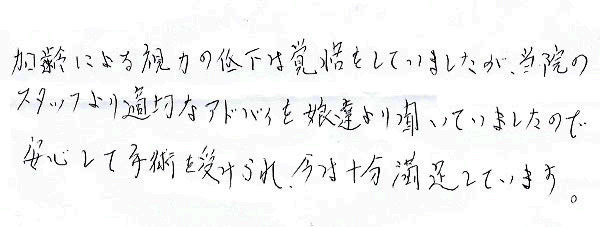 加齢による視力の低下は覚悟をしていましたが、当院の
スタッフより適切なアドバイを娘達より聞いていましたので
安心して手術を受けられ、今は十分満足しています。